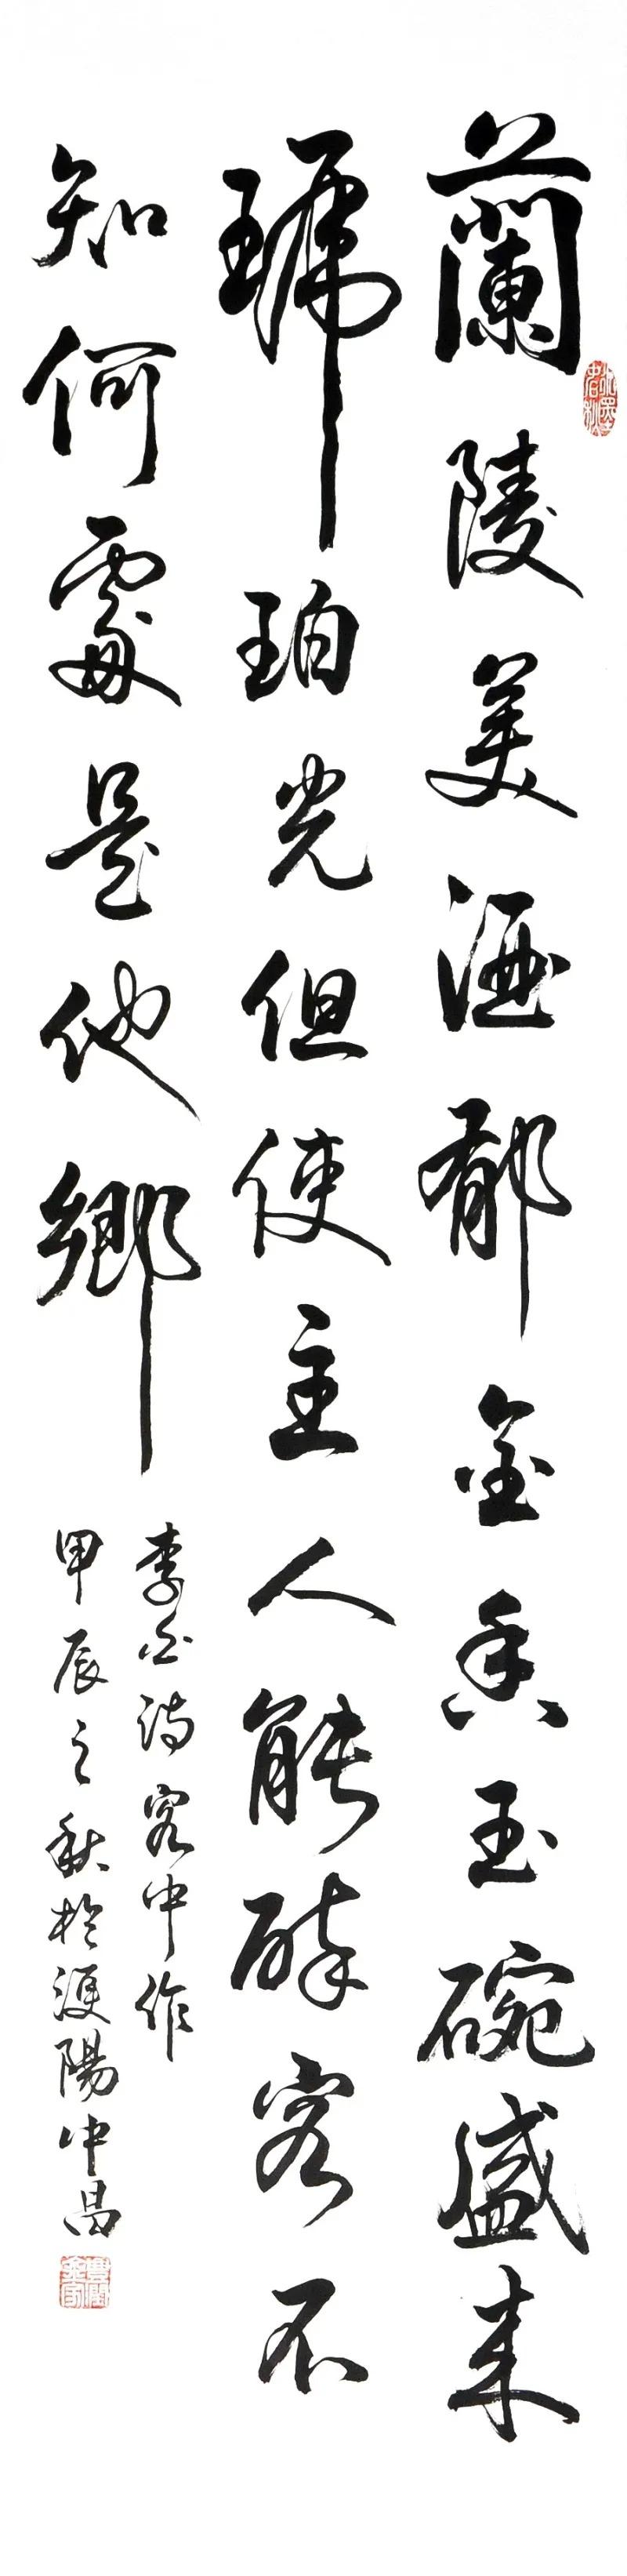 蘭陵美酒郁金香玉碗盛来
琥珀光但使主人能醉客不
知何處是他鄉
李白詩客中作
甲辰之秋於濩陽中昌